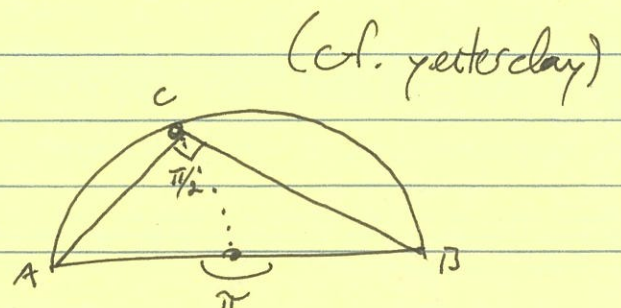 (cf. yesterday)
C
π/2
A B
π